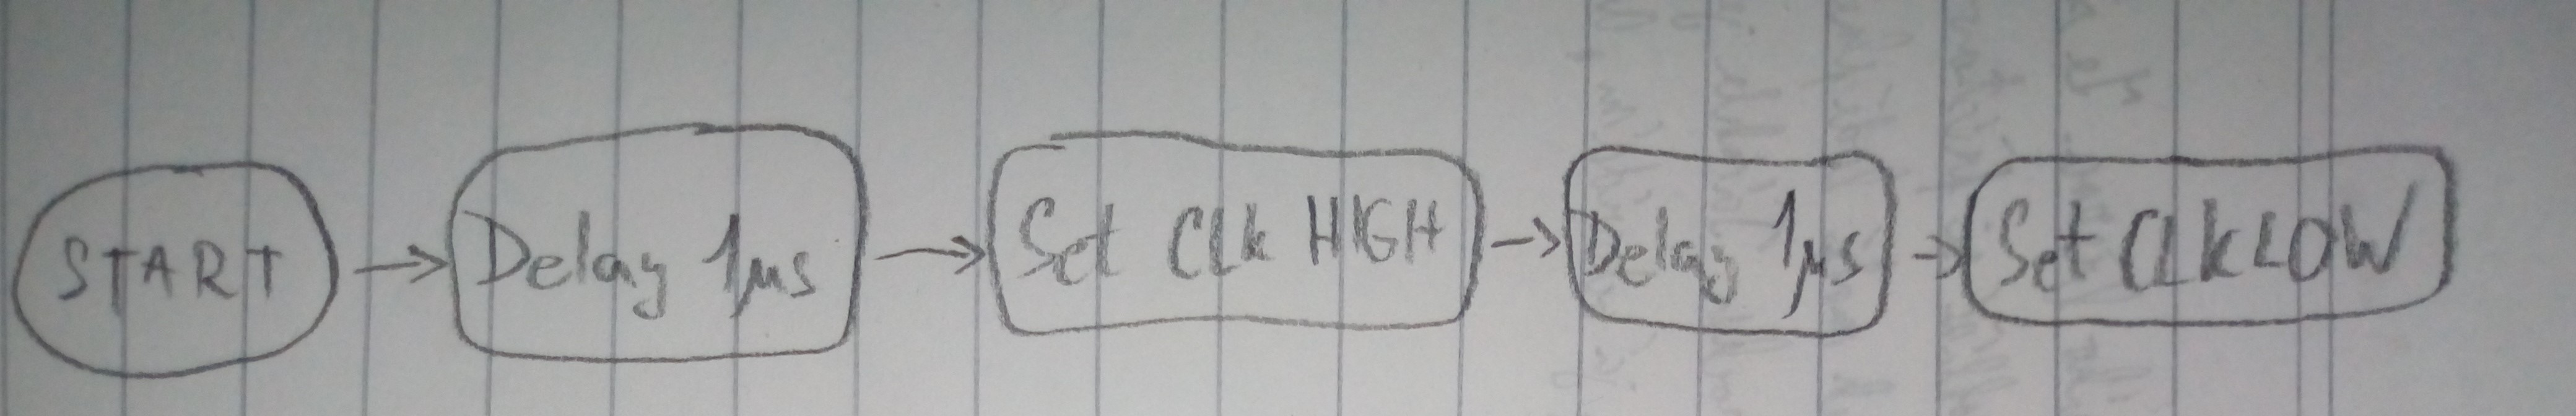 START
Delay 1μs
Set CLk HIGH
Delay 1μs
Set CLK LOW